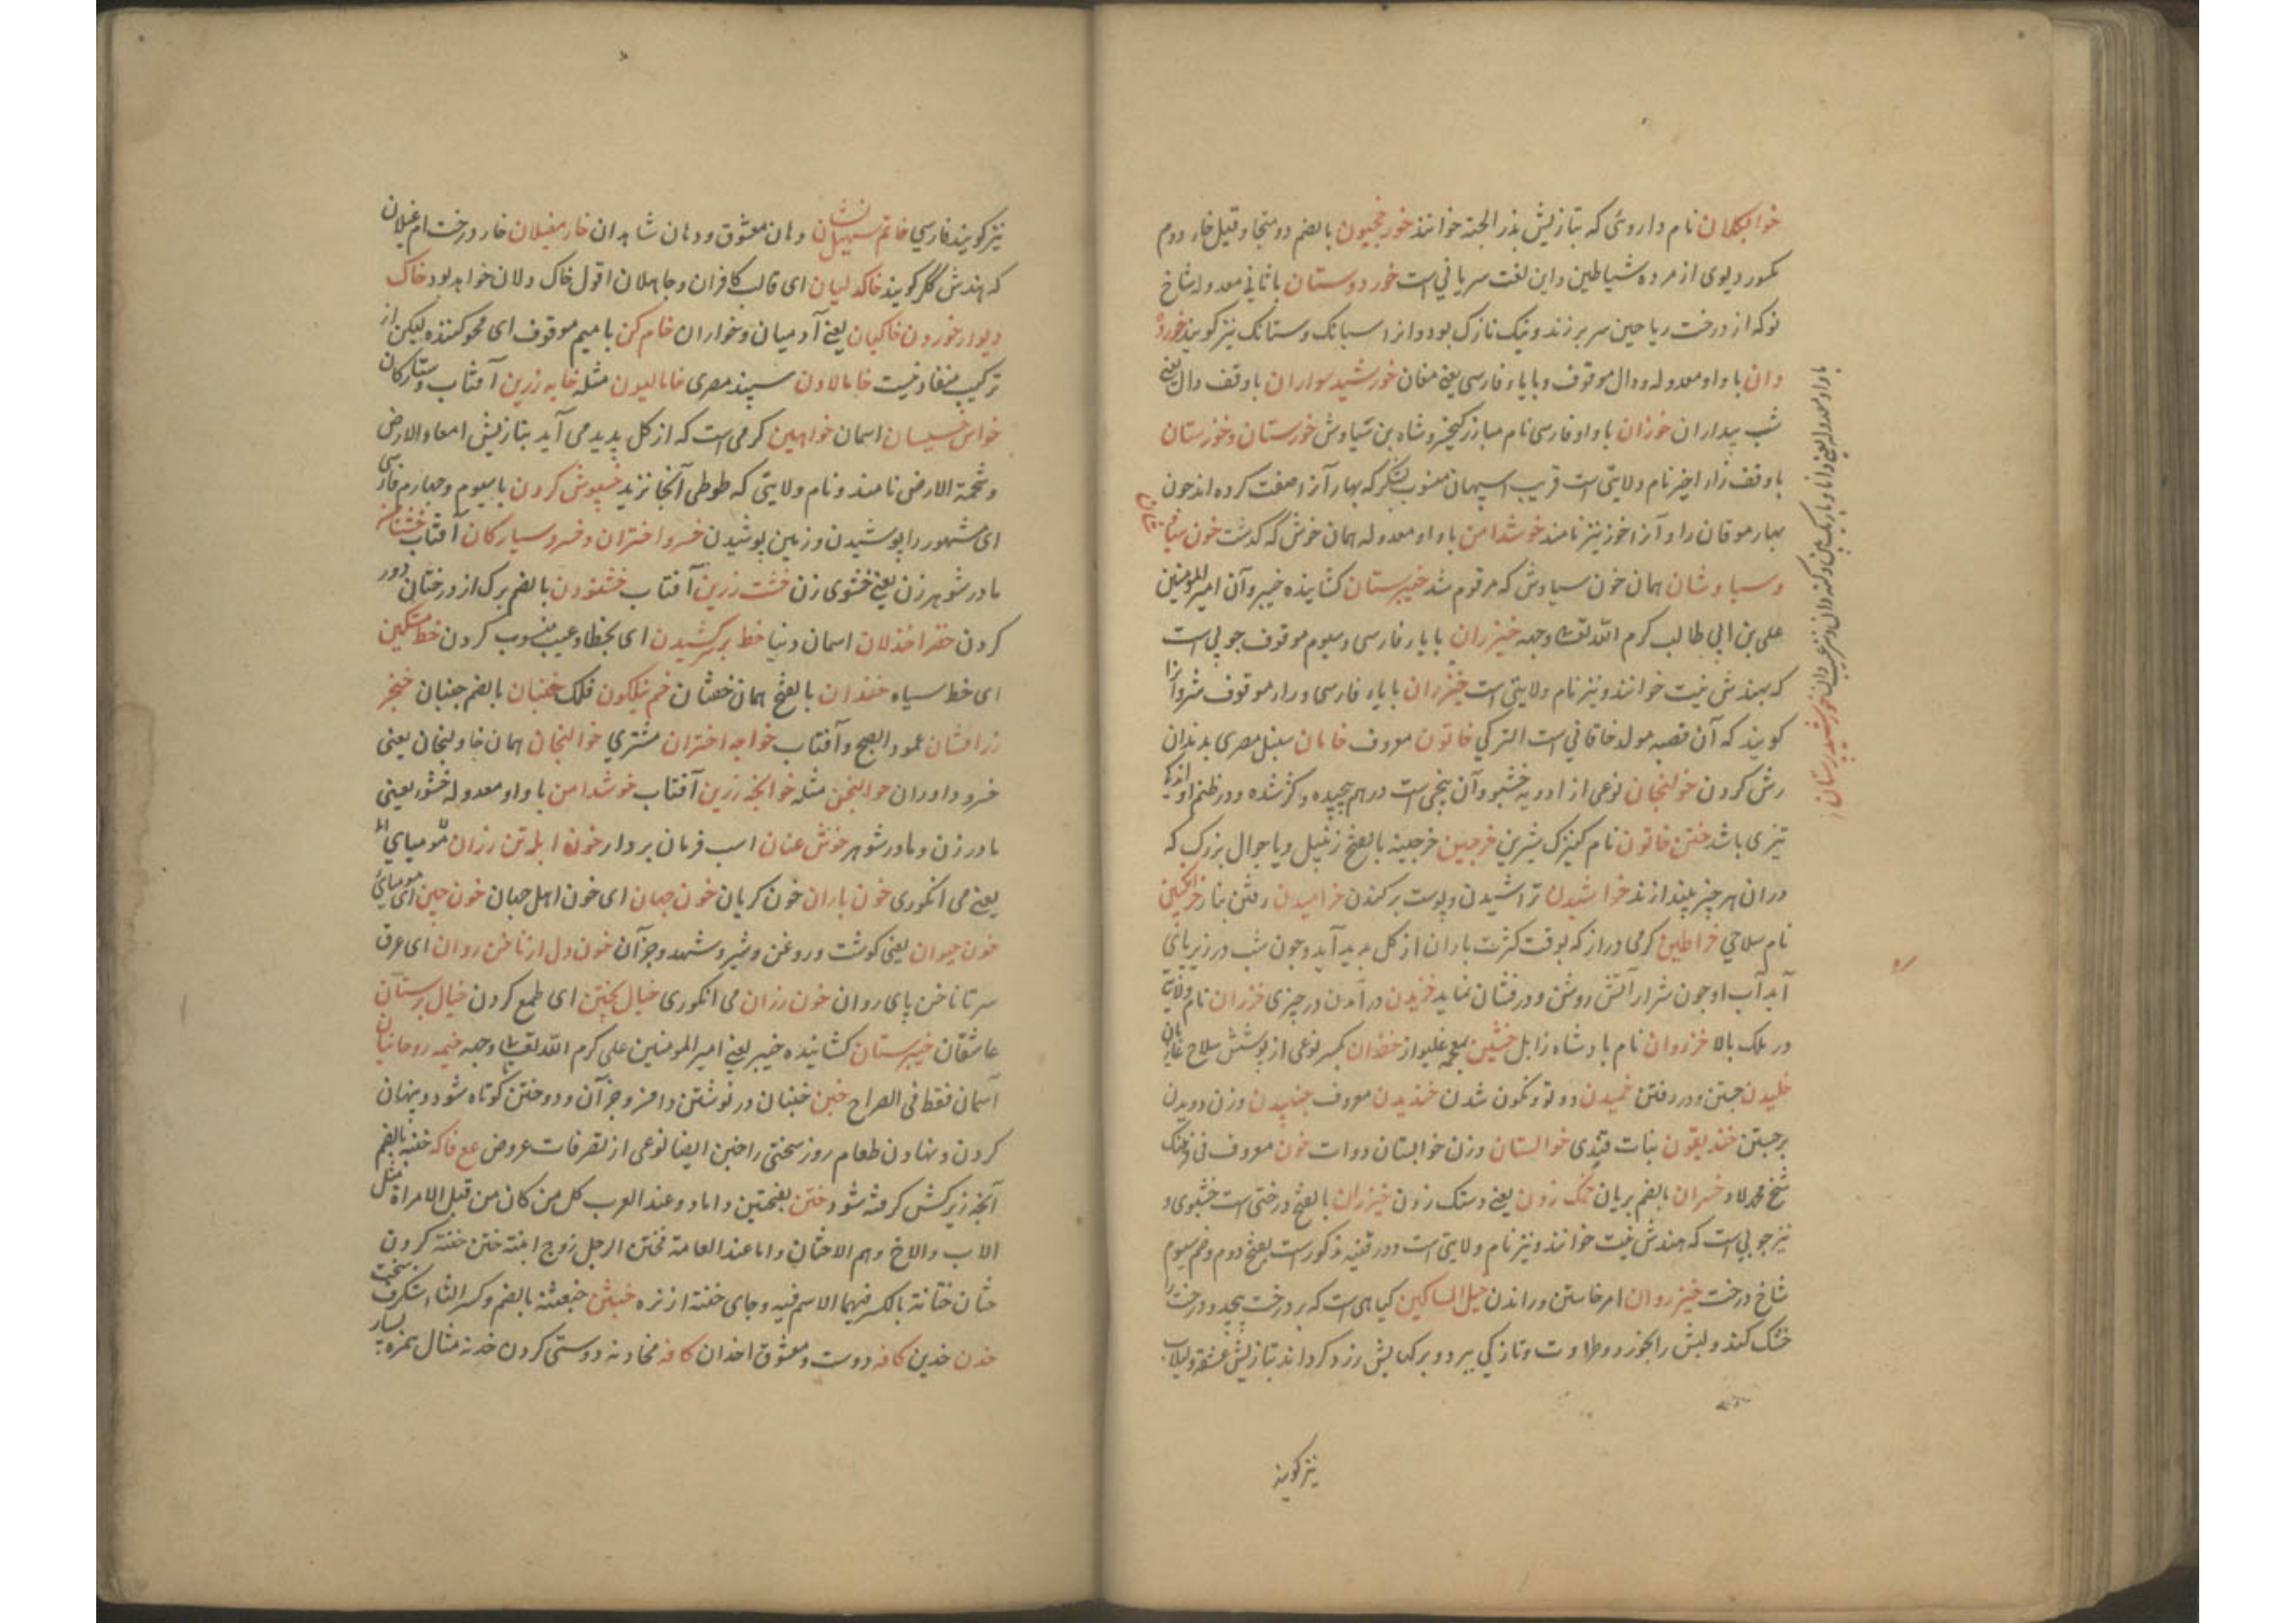 خوابکلان نام داروئی که بتازیش بذر الجنة خوانند خورخجیون بالضم دو منجا و قیل خاء دوم
مکسور دیوی از مرده شیاطین و این لغت سریانی است خوردوستان با ثانی معدوله شاخ
نو که از درخت ریاحین سر بر زند و نیک نازک بود و انرا سبانک و ستانک نیز کویند خورده
دان با واو معدوله و دال موقوف و با یاء فارسی یعنی مغان خورشید سواران با وقف دال یعنی
شب بیداران خوزان با واو فارسی نام مبارز کیخسرو شاه بن سیاوش خورستان و خوزستان
با وقف زاء اخیر نام ولایتی است قریب اسپهان منسوب بشکر که بهار آنرا صفت کرده اند چون
بهار موقان را و آنرا خوز نیز نامند خوشدامن با واو معدوله همان خوش که گذشت خون سیا
وسیاوشان همان خون سیاوش که مرقوم شد خیبرستان کشاینده خیبر و آن امیر المؤمنین
علی بن ابی طالب کرم الله تعالی وجهه خیزران با یاء فارسی و سیوم موقوف چوبی است
که بهندش بیت خوانند و نیز نام ولایتی است خیزران با یاء فارسی و راء موقوف شروانرا
کویند که آن قصبه مولد خاقانی است الترکی خاتون معروف خامان سنبل مصری بدندان
رش کردن خولنجان نوعی از ادویه خشبو و آن بیخی است درهم پیچیده و کژ شده و در طعم او اندک
تیزی باشد ختن خاتون نام کنیزک شیرین خرجین خرجینه بالفتح زنبیل و یا جوال بزرک که
دران هر چیز بیندازند خراشیدن تراشیدن و پوست برکندن خرامیدن رفتن بناز خرانکین
نام سلاحی خراطین کرمی دراز که بوقت کثرت باران از کل پدید آید و چون شب در زیر پائی
آید آب او چون شرار آتش روشن و درفشان نماید خزیدن در آمدن در چیزی خزران نام ولایتی
در ملک بالا خزروان نام بادشاه زابل خشین بمعجمه غلیواز خفدان بکسر نوعی از پوشش سلاح غازیان
خلیدن جستن و در رفتن خمیدن دو تو و نکون شدن خندیدن معروف جنبیدن وزن دویدن
برجستن خندیقون نبات قندی خوالستان وزن خوابستان دوات خون معروف فی فرهنک
شیخ محمد لاد خسران بالضم بریان خنک زدن یعنی دستک زدن خیزران بالفتح درختی است خشبوی و
نیز چوبی است که بهندش بیت خوانند و نیز نام ولایتی است و در قنیه مذکور است بفتح دوم و ضم سیوم
شاخ درخت خیزروان امر خاستن و راندن حبل المساکین کیاهی است که بر درخت پیچد و درخت را
خشک کند و لبش را بخورد و طراوت و تازکی ببرد و برکهایش زرد کرداند بتازیش عشقه و لبلاب
نیز کویند
با واو معدوله یعنی دانا و باریک بین و نکته دان و نیز غیب دان خورشید پرستان
نیز کویند فارسی خاتم سهیل نشان دهان معشوق و دهان شاهدان خار مغیلان خار درخت ام غیلان
که هندش ککر کویند خاکدلیان ای قالب کافران و جاهلان اقول خاک دلان خواهد بود خاک
دیوار خوردن خاکیان یعنی آدمیان و خواران خام کن با میم موقوف ای محو کننده لیکن از
ترکیب مفاد نیست خامالاون سپند مصری خامالیون مثله خایه زرین آفتاب و ستارکان
خراس خسیسان اسمان خراهین کرمی است که از کل پدید می آید بتازیش امعاء الارض
و شحمة الارض نامند و نام ولایتی که طوطی آنجا نزید خسپوش کردن با سیوم و چهارم فارسی
ای مشهور را پوشیدن و زمین پوشیدن خسرو اختران و خسرو سیارکان آفتاب خشتامن
مادر شوهر زن یعنی خشوی زن خشت زرین آفتاب خشنودن بالضم برک از درختان دور
کردن خضرا خذلان اسمان دنیا خط بر کشیدن ای بخطا و عیب منسوب کردن خط مشکین
ای خط سیاه خفدان بالفتح همان خفتان خم نیلکون فلک خنبان بالضم جنبان خنجر
زر افشان عمود الصبح و آفتاب خواجه اختران مشتری خوالنجان همان خاولنجان یعنی
خسرودارو دران خوالنجن مثله خوانچه زرین آفتاب خوشدامن با واو معدوله خشو یعنی
مادر زن و مادر شوهر خوش عنان اسب فرمان بردار خون ابله تن رزان
یعنی می انکوری خون باران خون کریان خون جهان ای خون اهل جهان خون چین ای مومیائی
خون حیوان یعنی کوشت و روغن و شیر و شهد و جز آن خون دل از ناخن روان ای عرق
سر تا ناخن پای روان خون رزان می انکوری خیال پختن ای طمع کردن خیال پرستان
عاشقان خیبرستان کشاینده خیبر یعنی امیر المؤمنین علی کرم الله تعالی وجهه خیمه روحانیان
آسمان فقط فی الصراح خبن خبنان در نوشتن دامن و جز آن و دوختن کوتاه شود و پنهان
کردن و نهادن طعام روز سختی را خبن ایضا نوعی از تصرفات عروض ع ع فا که خبنه بالضم
آنچه زیر کش کرفته شود ختن بفتحتین داماد و عند العرب کل من کان من قبل الامراة مثل
الاب و الاخ و هم الاختان و اما عند العامة فختن الرجل زوج ابنته ختن ختنه کردن
ختان ختانة بالکسر فیهما الاسم فیه و جای ختنه از نره خبعثن خبعثنه بالضم و کسر الثاء شکرف سخت
خدن خدین کافه دوست و معشوق اخدان کافه مخادنه دوستی کردن خدنه مثال همزه بسیار